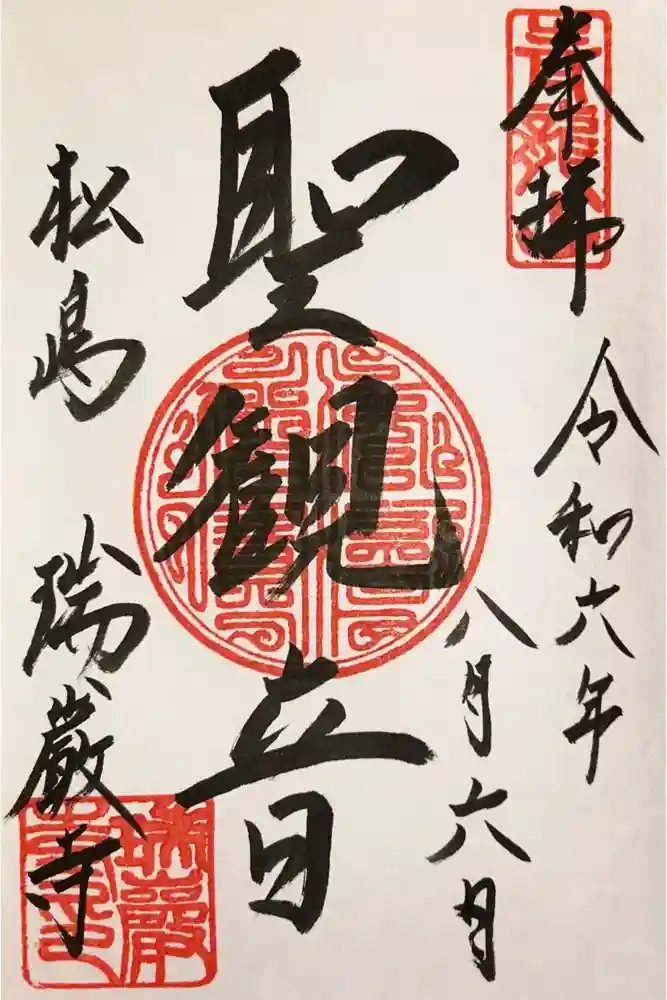 奉拝
令和六年
八月六日
聖観音
松嶋 瑞巌寺
青龍山